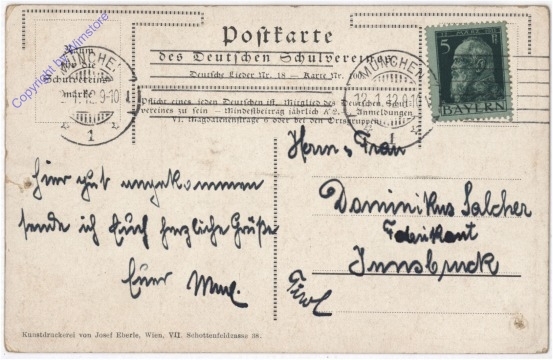 Postkarte
des Deutschen Schulvereines
Deutsche Lieder Nr. 18 — Karte Nr.
Raum
für die
Schulvereins-
marke
MÜNCHEN
1.12.9-10
1
MÜNCHEN
12.1.12.9-10
1
5 Pf
BAYERN
Pflicht eines jeden Deutschen ist, Mitglied des Deutschen Schul-
vereines zu sein — Mindestbeitrag jährlich K 2. Anmeldungen
VI. Magdalenenstraße 6 oder bei den Ortsgruppen.
Hier gut angekommen
sende ich Euch herzliche Grüße
Euer
Herrn u. Frau
Dominikus Salcher
Fabrikant
Innsbruck
Tirol
Kunstdruckerei von Josef Eberle, Wien, VII. Schottenfeldgasse 38.
Copyright by Wimstore